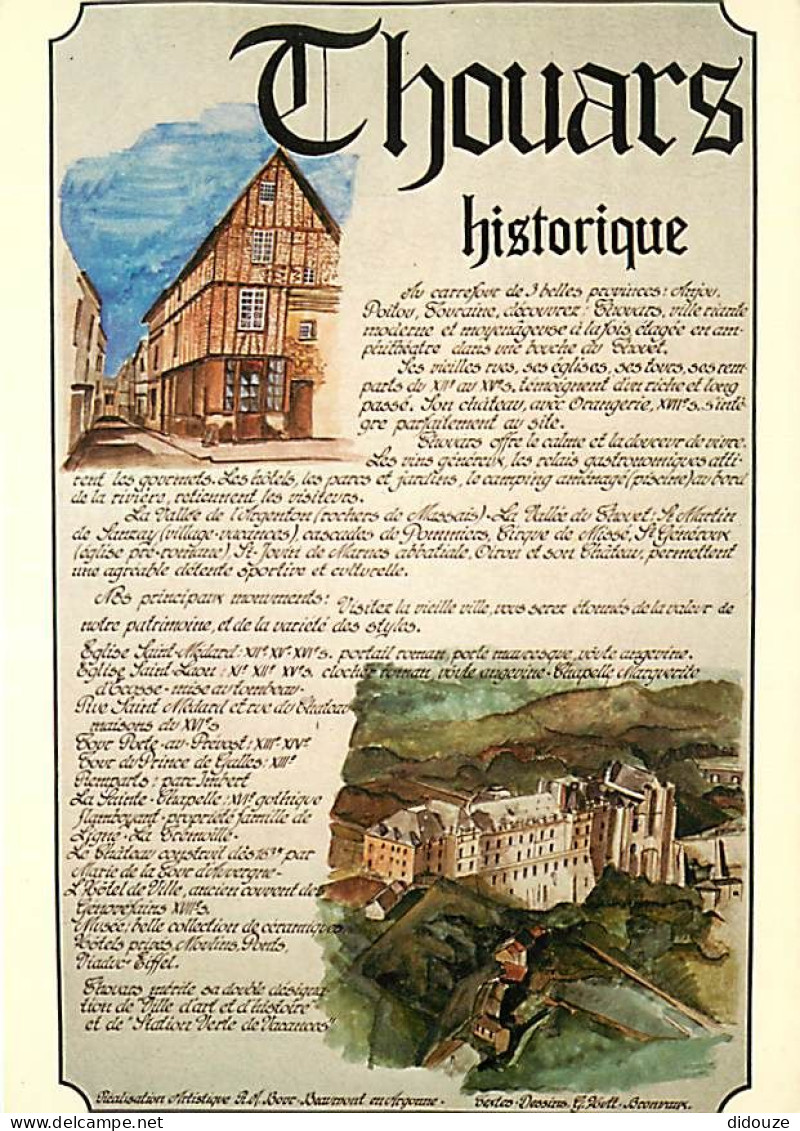 Thouars
historique
Au carrefour de 3 belles provinces: Anjou,
Poitou, Touraine, découvrez: Thouars, ville riante
moderne et moyenageuse à la fois, étagée en am-
phithéatre dans une bouche du Thouet.
Ses vieilles rues, ses églises, ses tours, ses rem-
parts du XIIe au XVe s. témoignent d'un riche et long
passé. Son château, avec Orangerie, XVIIe s. s'intè-
gre parfaitement au site.
Thouars offre le calme et la douceur de vivre.
Les vins généreux, les relais gastronomiques atti-
rent les gourmets. Les hôtels, les parcs et jardins, le camping aménagé (piscine) au bord
de la rivière, retiennent les visiteurs.
La Vallée de l'Argenton (rochers de Massais)-La Vallée du Thouet: St Martin
de Sanzay (village-vacances), cascades de Pommiers, Cirque de Missé, St Généroux
(église pré-romane), St-Jouin de Marnes abbatiale, Oiron et son Château, permettent
une agréable détente sportive et culturelle.
Nos principaux monuments: Visitez la vieille ville, vous serez étonnés de la valeur de
notre patrimoine, et de la variété des styles.
Eglise Saint-Médard: XIIe XVe XVIe s. portail roman, porte mauresque, voûte angevine.
Eglise Saint-Laon: XIe XIIe XVe s. clocher roman, voûte angevine-Chapelle Marguerite
d'Ecosse-mise au tombeau-
Rue Saint Médard et rue du Château
maisons du XVIe s
Tour Porte-au-Prévost: XIIIe-XIVe
Tour du Prince de Galles: XIIe
Remparts: parc Imbert
La Sainte-Chapelle: XVIe gothique
flamboyant-propriété famille de
Ligne-La Trémoille-
Le Château construit dès 1635 par
Marie de la Tour d'Auvergne-
L'Hôtel de Ville, ancien couvent des
Génovéfains XVIIe s.
Musée: belle collection de céramiques
Hôtels privés, Moulins, Ponts,
Viaduc-Eiffel.
Thouars mérite sa double désigna-
tion de "Ville d'art et d'histoire"
et de "Station Verte de Vacances"
Réalisation Artistique R.A. Bour-Beaumont en Argonne-
Textes-Dessins G.
didouze